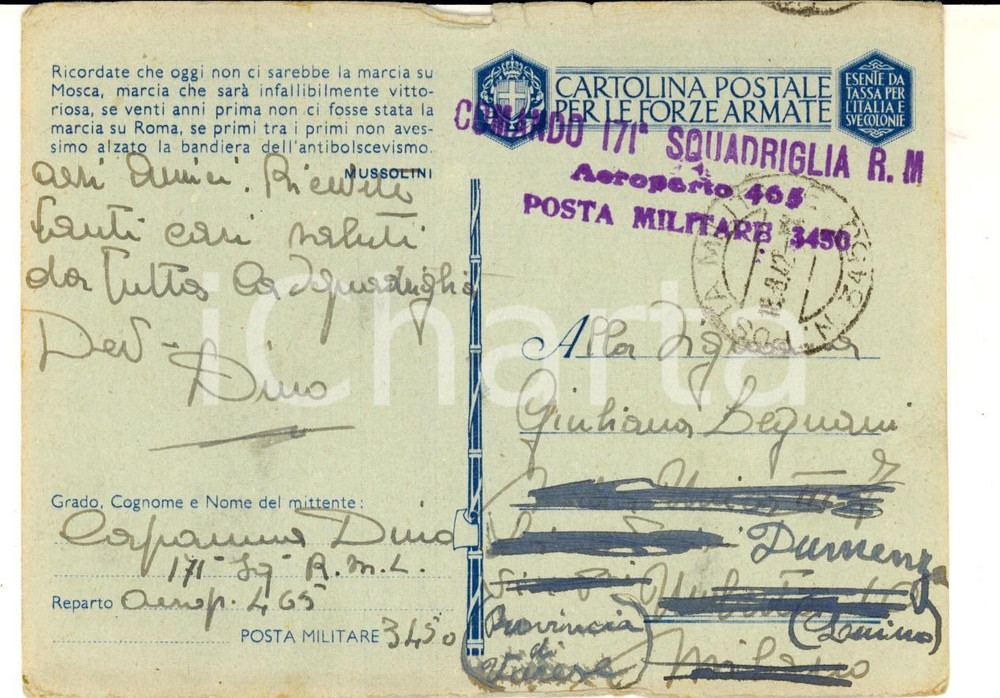 Ricordate che oggi non ci sarebbe la marcia su
Mosca, marcia che sarà infallibilmente vitto-
riosa, se venti anni prima non ci fosse stata la
marcia su Roma, se primi tra i primi non aves-
simo alzato la bandiera dell'antibolscevismo.
MUSSOLINI
cari amici. Ricevete
tanti cari saluti
da tutta la squadriglia
Dev-
Dino
Grado, Cognome e Nome del mittente:
Capanna Dino
171ª Sq R.M.L.
Reparto Aerop. 465
POSTA MILITARE 3450
CARTOLINA POSTALE
PER LE FORZE ARMATE
ESENTE DA
TASSA PER
L'ITALIA E
SVE COLONIE
COMANDO 171ª SQUADRIGLIA R. M
Aeroporto 465
POSTA MILITARE 3450
POSTA MILITARE N. 3450
Alla Signorina
Giuliana Legnani
Dumenza
(Luino)
Provincia
di
Varese
Milano
iCharta